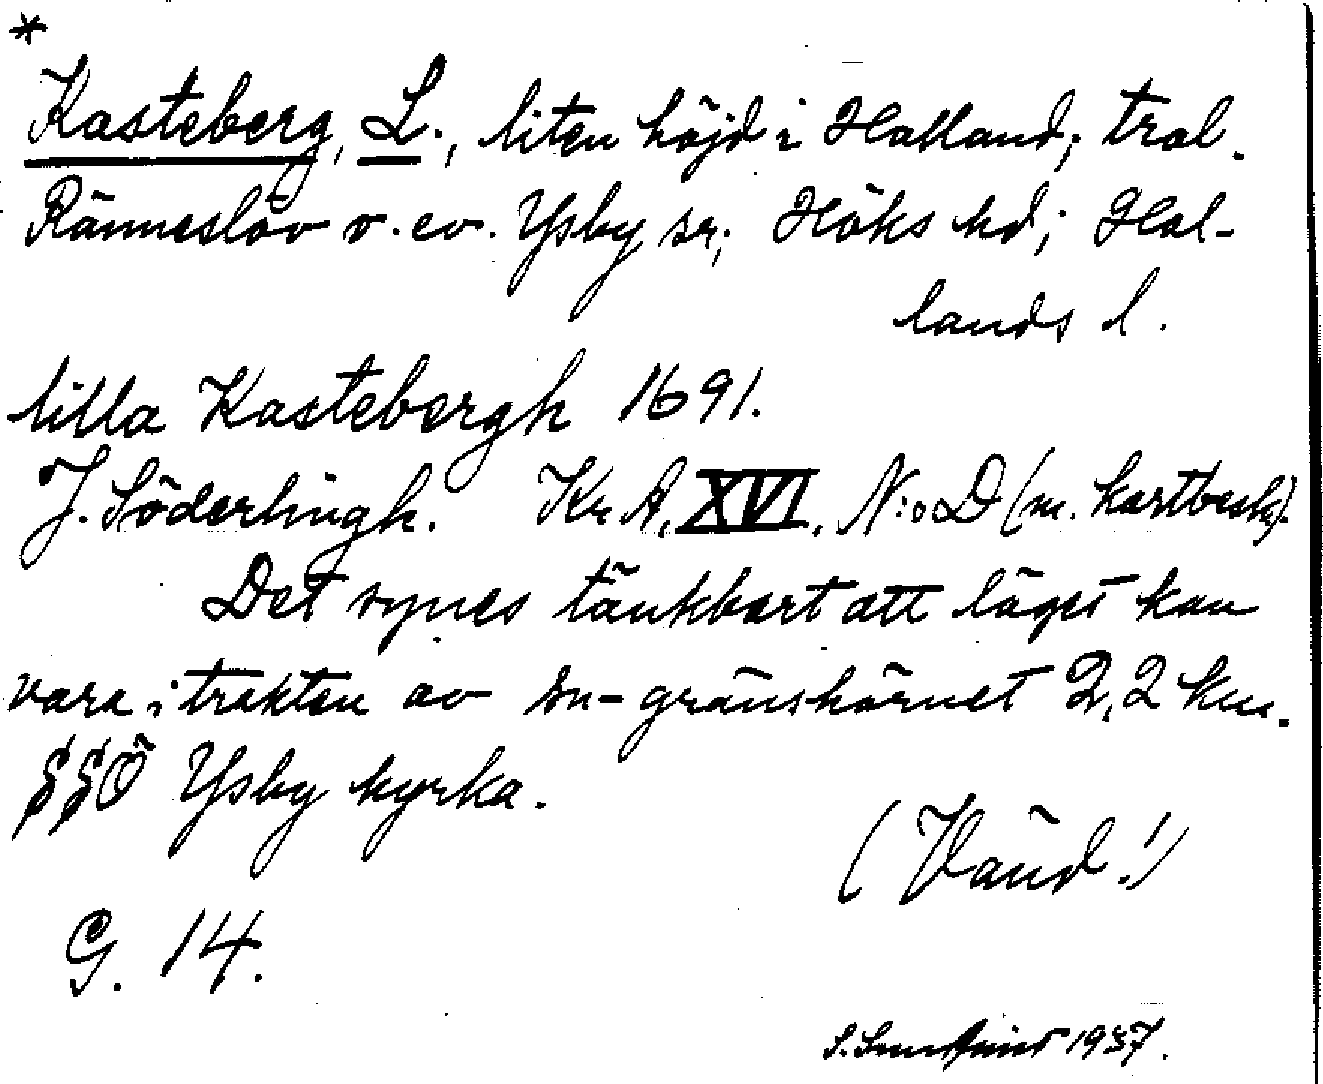 *
Kasteberg, L., liten höjd i Halland; trol.
Ränneslöv o. ev. Ysby sr; Höks hd; Hal-
lands l.
lilla Kastebergh 1691.
J. Söderlingh. Kr A, XVI, N:o D (m. kartbeskr).
Det synes tänkbart att läget kan
vara i trakten av sn-gränshörnet 2,2 km.
SSÖ Ysby kyrka.
(Vänd!)
G. 14.
1937.